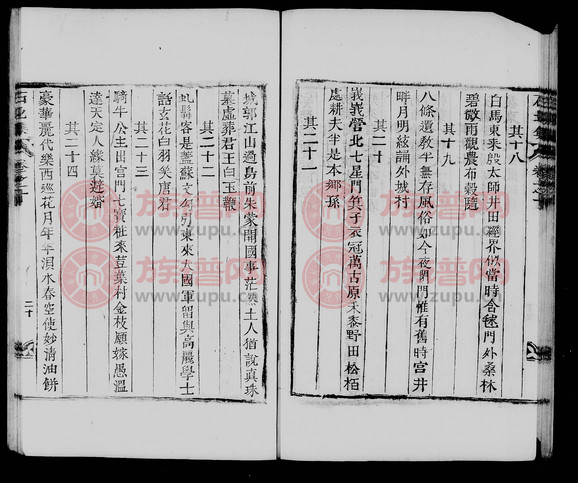 其十八
白馬東來殷太師井田經界似當時含毬門外桑林
碧微雨觀農布穀隨
其十九
八條遺教半無存風俗如今夜閉門惟有舊時宮井
畔月明絃誦外城村
其二十
峩峩營北七星門箕子衣冠萬古原禾黍野田松栢
處耕夫半是本鄉孫
其二十一
城郭江山過鳥前朱蒙開國事茫然土人猶說真珠
墓虛葬君王白玉鞭
其二十二
虬髯客是蓋蘇文勾引東來大國軍留與高麗學士
話玄花白羽笑唐君
其二十三
騎牛公主出宮門七寶粧來荳葉村金枝願嫁愚溫
達天定人緣莫避婚
其二十四
豪華麗代樂西巡花月年年浿水春空使妙清油餅
二十
族谱网
www.zupu.cn
族谱网
www.zupu.cn